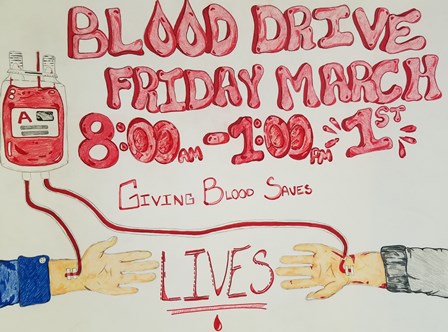 BLOOD DRIVE
FRIDAY MARCH
8:00AM - 1:00PM 1ST
A
GIVING BLOOD SAVES
LIVES